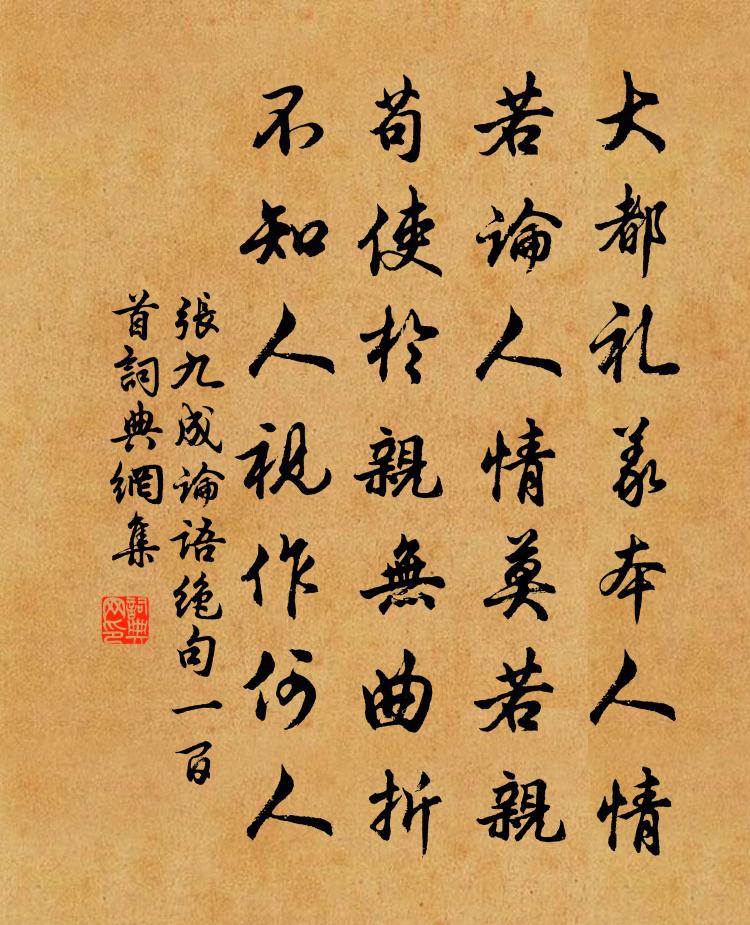 大都礼義本人情
若論人情莫若親
苟使於親無曲折
不知人視作何人
張九成論語绝句一百
首詞典網集
詞典网印